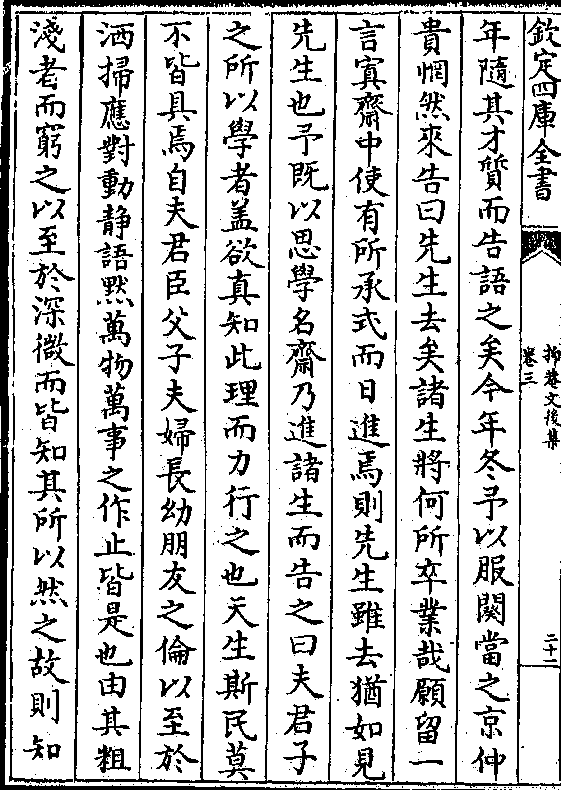 欽定四庫全書
抑菴文後集
卷三
二十二
年隨其才質而告語之矣今年冬予以服闋當之京仲
貴惘然來告曰先生去矣諸生將何所卒業哉願留一
言寘齋中使有所承式而日進焉則先生雖去猶如見
先生也予既以思學名齋乃進諸生而告之曰夫君子
之所以學者盖欲真知此理而力行之也天生斯民莫
不皆具焉自夫君臣父子夫婦長幼朋友之倫以至於
洒掃應對動静語黙萬物萬事之作止皆是也由其粗
淺者而窮之以至於深微而皆知其所以然之故則知